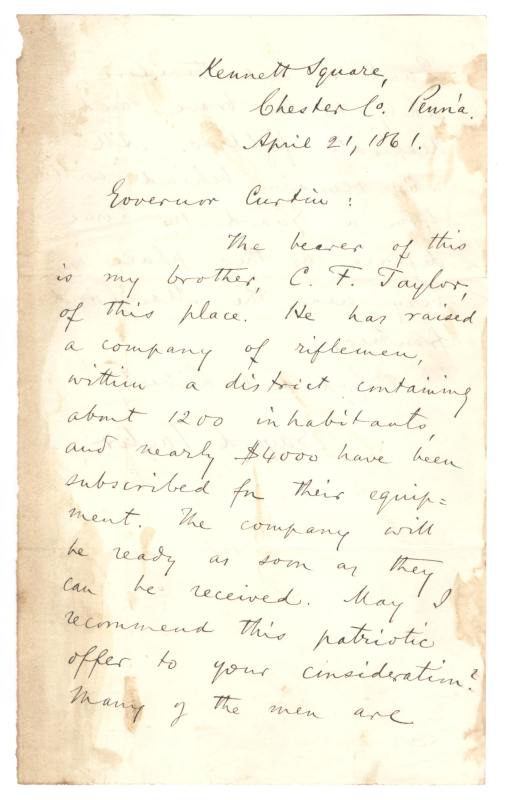 Kennett Square,
Chester Co. Penn'a.
April 21, 1861.
Governor Curtin:
The bearer of this
is my brother, C. F. Taylor,
of this place. He has raised
a company of riflemen,
within a district containing
about 1200 inhabitants,
and nearly $4000 have been
subscribed for their equip=
ment. The company will
be ready as soon as they
can be received. May I
recommend this patriotic
offer to your consideration?
Many of the men are